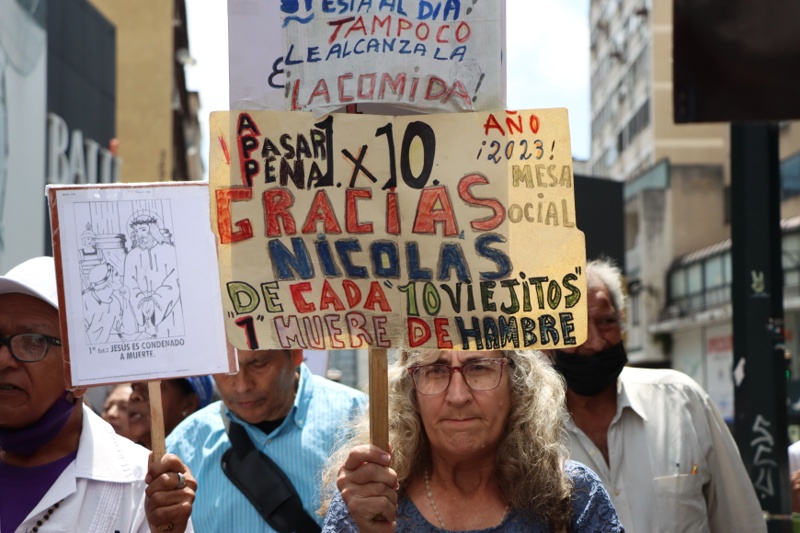 ¡ESTA AL DÍA!
TAMPOCO
LE ALCANZA LA
¡LA COMIDA!
A PASAR 1 x 10. AÑO
PENA ¡2023!
GRACIAS MESA
SOCIAL
NICOLÁS
DE CADA "10 VIEJITOS"
"1" MUERE DE HAMBRE
1ª EST: JESÚS ES CONDENADO
A MUERTE.